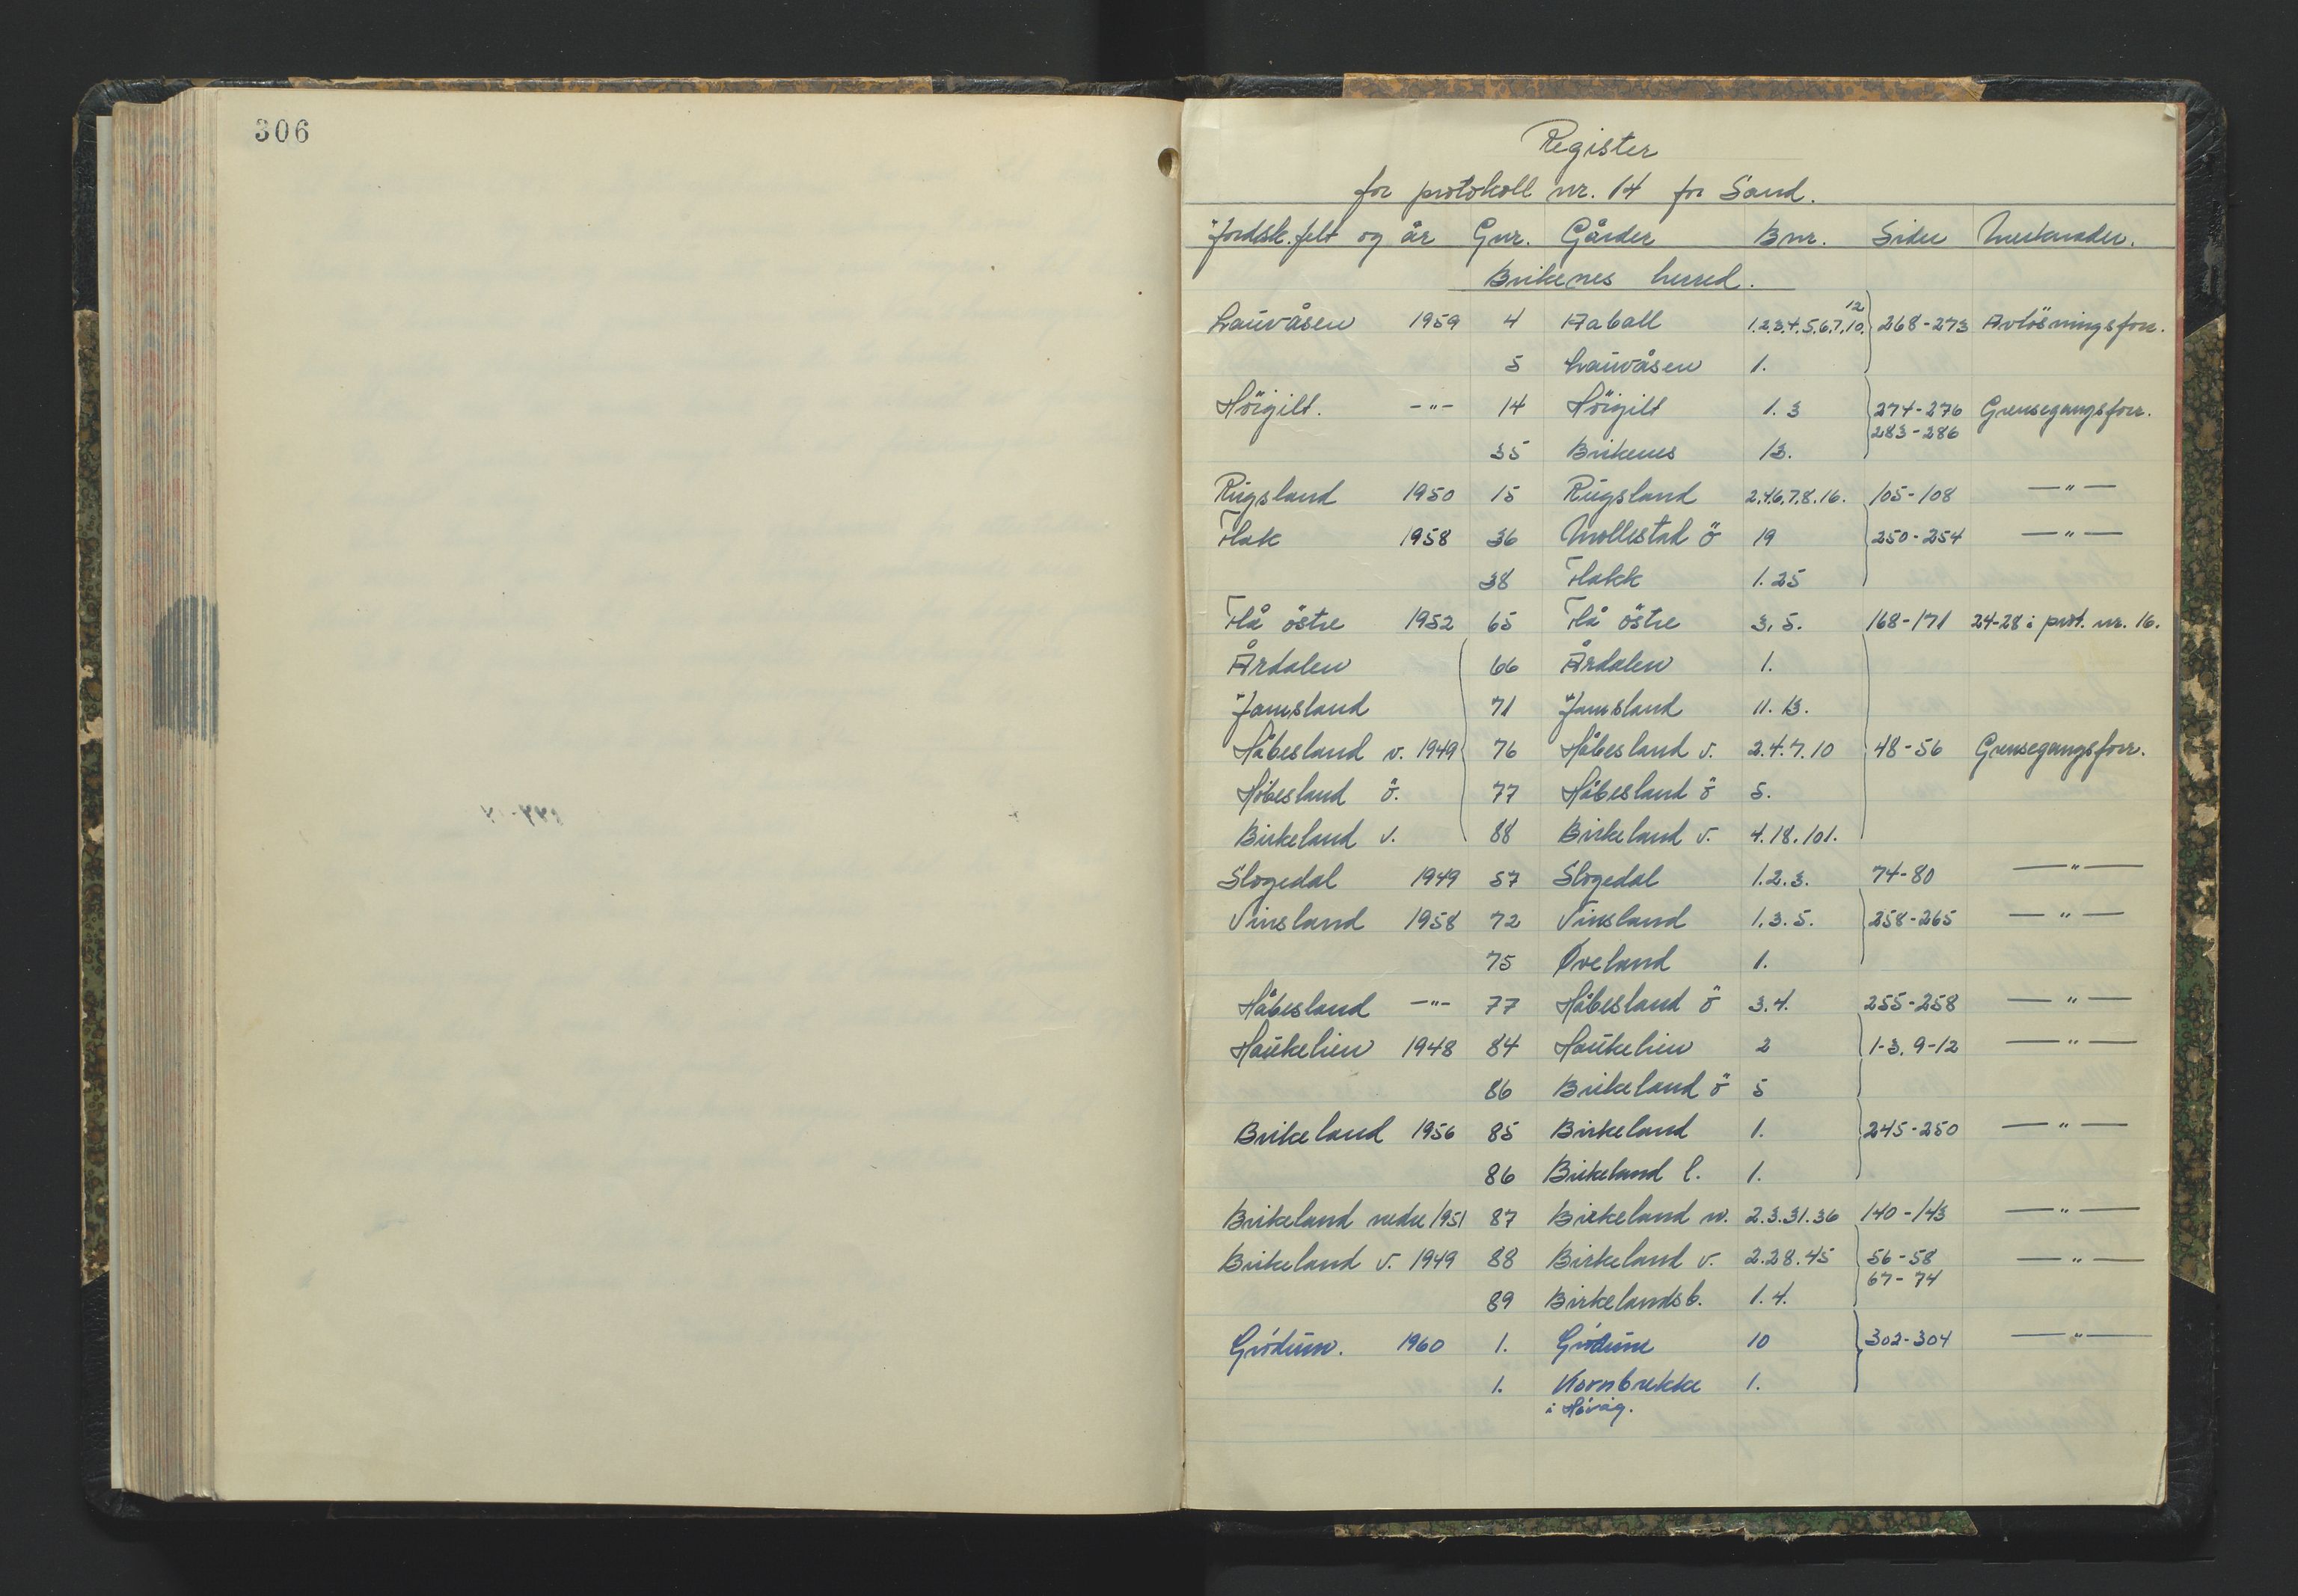 306
Register
for protokoll nr. 14 for Sand.
Jordsk. felt og år Gnr. Gårder Bnr. Sider Merknader.
Birkenes herred.
Lauvåsen 1959 4 Haball 1.2.3.4.5.6.7.10.12 268-273 Avlösningsforr.
5 Lauvåsen 1.
Höigilt. -"- 14 Höigilt 1.3 274-276 Grensegangsforr.
283-286
35 Birkenes 13.
Rugsland 1950 15 Rugsland 2.4.6.7.8.16. 105-108 -"-
Flak 1958 36 Mollestad ö 19 250-254 -"-
38 Flakk 1.25
Flå östre 1952 65 Flå östre 3.5. 168-171 24-28 i prot. nr. 16.
Årdalen 66 Årdalen 1.
Jamsland 71 Jamsland 11.13.
Håbesland v. 1949 76 Håbesland v. 2.4.7.10 48-56 Grensegangsforr.
Håbesland ö. 77 Håbesland ö 5.
Birkeland v. 88 Birkeland v. 4.18.101.
Slogedal 1949 57 Slogedal 1.2.3. 74-80 -"-
Vinsland 1958 72 Vinsland 1.3.5. 258-265 -"-
75 Øveland 1.
Håbesland -"- 77 Håbesland ö 3.4. 255-258 -"-
Haukelien 1948 84 Haukelien 2 1-3. 9-12 -"-
86 Birkeland ö 5
Birkeland 1956 85 Birkeland 1. 245-250 -"-
86 Birkeland l. 1.
Birkeland nedre 1951 87 Birkeland n. 2.3.31.36 140-143 -"-
Birkeland v. 1949 88 Birkeland v. 2.28.45 56-58 -"-
67-74
89 Birkelandsb. 1.4.
Grödum. 1960 1. Grödum 10 302-304 -"-
1. Kornbrekke 1.
i Hövåg.